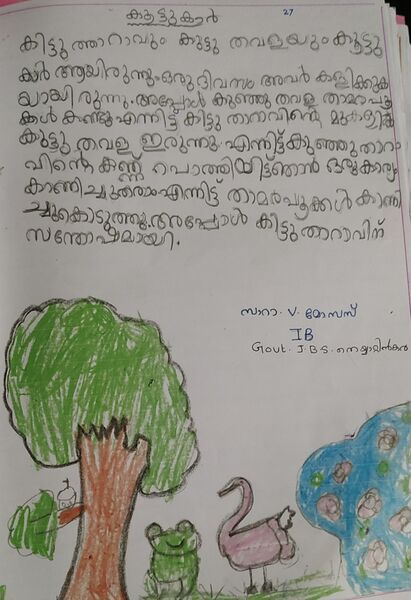 കൂട്ടുകാർ
27
കിട്ടു താറാവും കുട്ടു തവളയും കൂട്ടു
കാർ ആയിരുന്നു. ഒരു ദിവസം അവർ കളിക്കുക
യായി രുന്നു. അപ്പോൾ കുഞ്ഞു തവള താമരപ്പൂ
ക്കൾ കണ്ടു എന്നിട്ട് കിട്ടു താറാവിന്റെ മുകളിൽ
കുട്ടു തവള ഇരുന്നു. എന്നിട്ട് കുഞ്ഞു താറാ
വിന്റെ കണ്ണ് പൊത്തിയിട്ട് ഞാൻ ഒരു കാര്യം
കാണിച്ചു തരാം എന്നിട്ട് താമരപൂക്കൾ കാണി
ച്ചുകൊടുത്തു. അപ്പോൾ കിട്ടു താറാവിന്
സന്തോഷമായി.
സാറാ. V. മോസസ്
IB
Govt. J.B.S. നെയ്യാറ്റിൻകര